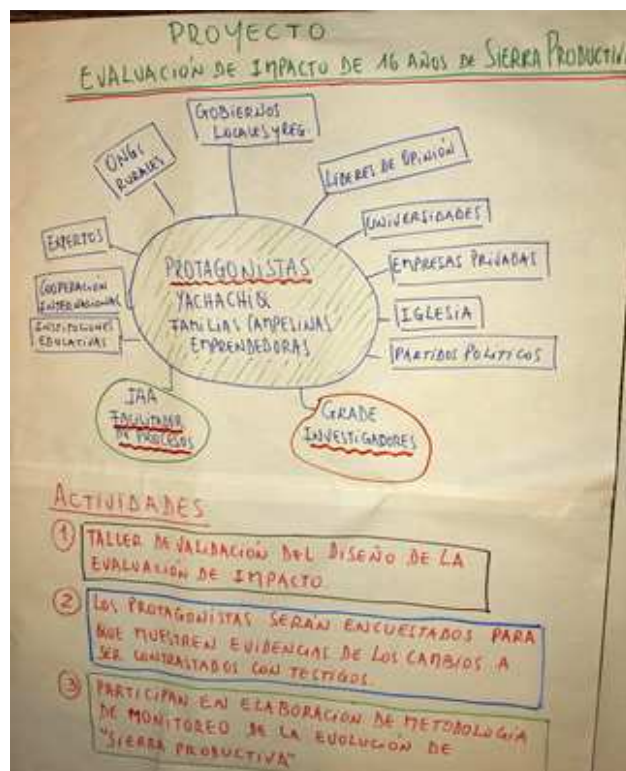 PROYECTO
EVALUACIÓN DE IMPACTO DE 16 AÑOS DE SIERRA PRODUCTIV
GOBIERNOS
LOCALES Y REG.
ONGS
RURALES
LÍDERES DE OPINIÓN
UNIVERSIDADES
EXPERTOS
EMPRESAS PRIVADAS
COOPERACIÓN
INTERNACIONAL
IGLESIA
INSTITUCIONES
EDUCATIVAS
PARTIDOS POLITICOS
PROTAGONISTAS
YACHACHIQ
FAMILIAS CAMPESINAS
EMPRENDEDORAS
IAA
FACILITADOR
DE PROCESOS
GRADE
INVESTIGADORES
ACTIVIDADES
1 TALLER DE VALIDACIÓN DEL DISEÑO DE LA
EVALUACIÓN DE IMPACTO
2 LOS PROTAGONISTAS SERÁN ENCUESTADOS PARA
QUE MUESTREN EVIDENCIAS DE LOS CAMBIOS A
SER CONTRASTADOS CON TESTIGOS.
3 PARTICIPAN EN ELABORACIÓN DE METODOLOGÍA
DE MONITOREO DE LA EVOLUCIÓN DE
"SIERRA PRODUCTIVA"